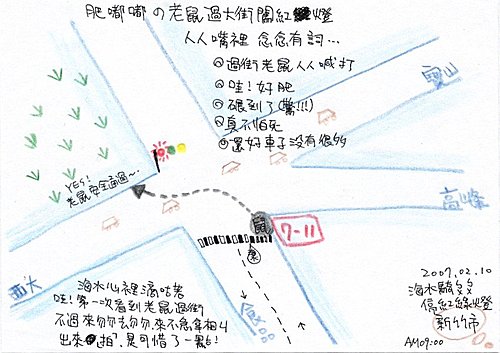 肥嘟嘟の老鼠過大街闖紅燈
人人嘴裡 念念有詞...
過街老鼠人人喊打
哇!好肥
碾到了(驚!!!)
真不怕死
還好車子沒有很多
YES!
老鼠安全通過~
鼠
7-11
高峰
西大
海水心裡滴咕著
哇!第一次看到老鼠過街
不過來匆匆去匆匆,來不急拿相
出來拍,是可惜了一點!
2007.02.10
海水顏
信紅綠燈
新竹市
AM09:00